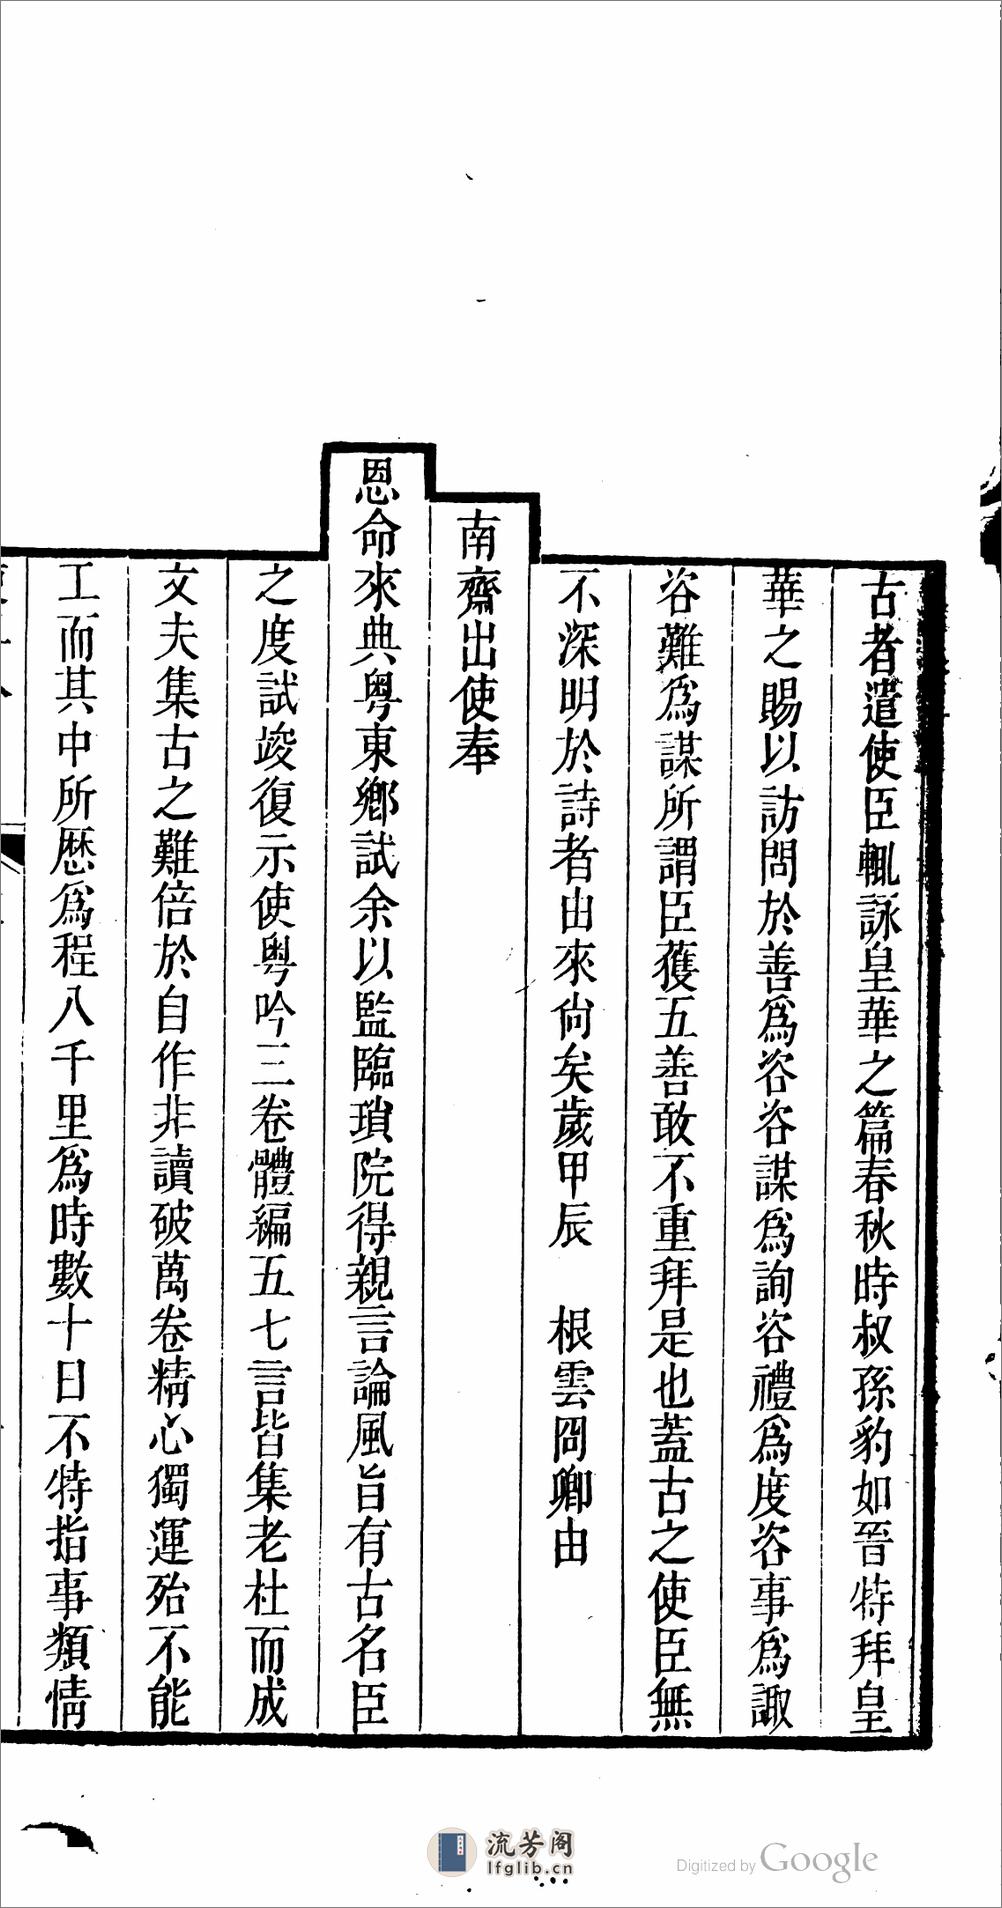 古者遣使臣輒詠皇華之篇春秋時叔孫豹如晉特拜皇
華之賜以訪問於善爲咨咨謀爲詢咨禮爲度咨事爲諏
咨難爲謀所謂臣獲五善敢不重拜是也蓋古之使臣無
不深明於詩者由來尙矣歲甲辰　根雲冏卿由
南齋出使奉
恩命來典粤東鄕試余以監臨瑣院得親言論風旨有古名臣
之度試竣復示使粤吟三卷體編五七言皆集老杜而成
文夫集古之難倍於自作非讀破萬卷精心獨運殆不能
工而其中所歴爲程八千里爲時數十日不特指事類情
流芳阁
lfglib.cn
Digitized by Google